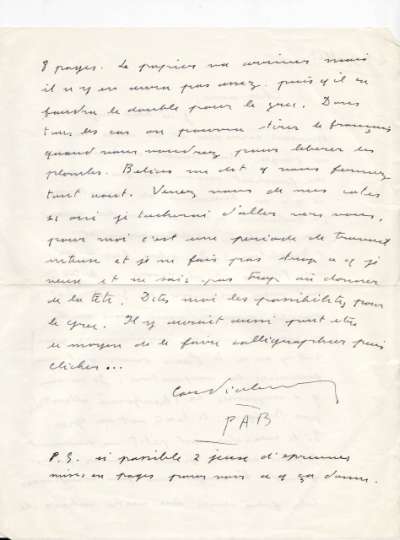 8 pages. Le papier va arriver mais
il n'y en aura pas assez. puisqu'il en
faudra le double pour le grec. Dans
tous les cas on pourra tirer le français
quand vous voudrez pour libérer les
plombs. me dit q vous fermez
tout aout. Venez nous de nos
si oui je tacherai d'aller vers vous,
pour moi c'est une periode de travail
intense et je ne fais pas trop ce q je
veux et ne sais pas trop où donner
de la tête. Dites moi les possibilités pour
le grec. Il y aurait aussi peut etre
le moyen de le faire calligraphier puis
clicher...
Cordialement
PAB
P.S. si possible 2 jeux d'epreuves
mises en pages pour voir ce q ça donne.